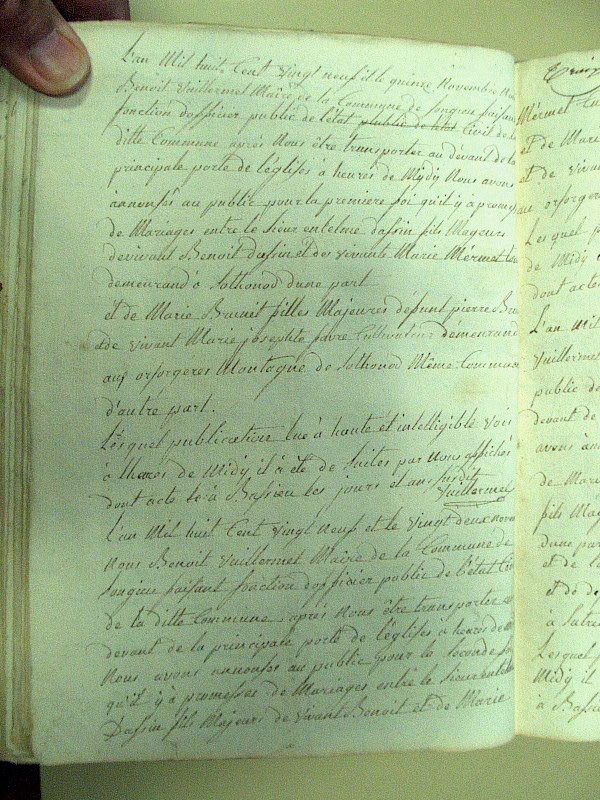 L'an Mil huit Cent vingt neuf et le quinze Novembre No
Benoit Vuillermet Maire de la Commune de Songieu faisant
fonction d'officier public de l'état publié de létat Civil de la
ditte Commune après Nous être transporter au dévant de la
principale porte de l'églises à heures de Mydy Nous avons
annonsés au public pour la premiere foi qu'il y à promes
de Mariages entre le sieur entelme dassin fils Majeurs
devivant Benoit dassin et des vivante Marie Mérmet
demeurand à Sothonod dune part
et de Marie Brunit filles Majeures défunt pierre Bru
de vivant Marie josephte favre Cultivateurs demeurant
aux orforgeres Montagne de Sothonod Même Commune
d'autre part.
Lesquel publication lue à haute et intelligible voix
à lheures de Midy il à été de suites par Nous affichés
dont acte à Bassieu les jours et ans susdit
Vuillermet
L'an Mil huit Cent vingt Neuf et le vingt deux nove
Nous Benoit Vuillermet Maire de la Commune de
songieu faisant fonction d'officier public de l'état Ci
de la ditte Commune après Nous être transporter
devant de la principale porte de l'églises à heures de
Nous avons annonsés au public pour la seconde fo
qu'il y à promesses de Mariages entre le sieur entel
Dassin fils Majeurs de vivant Benoit et de Marie
Mérmet
et de Marie
et de vivant
aux orforgeres
Lesquel p
de Midy
dont acte
L'an Mil
Vuillermet
publié de
devant de
avons ann
de Maria
fils Ma
Dune par
et de la
et de d
à Sutr
Lesquel
Midy il
à Bassieu